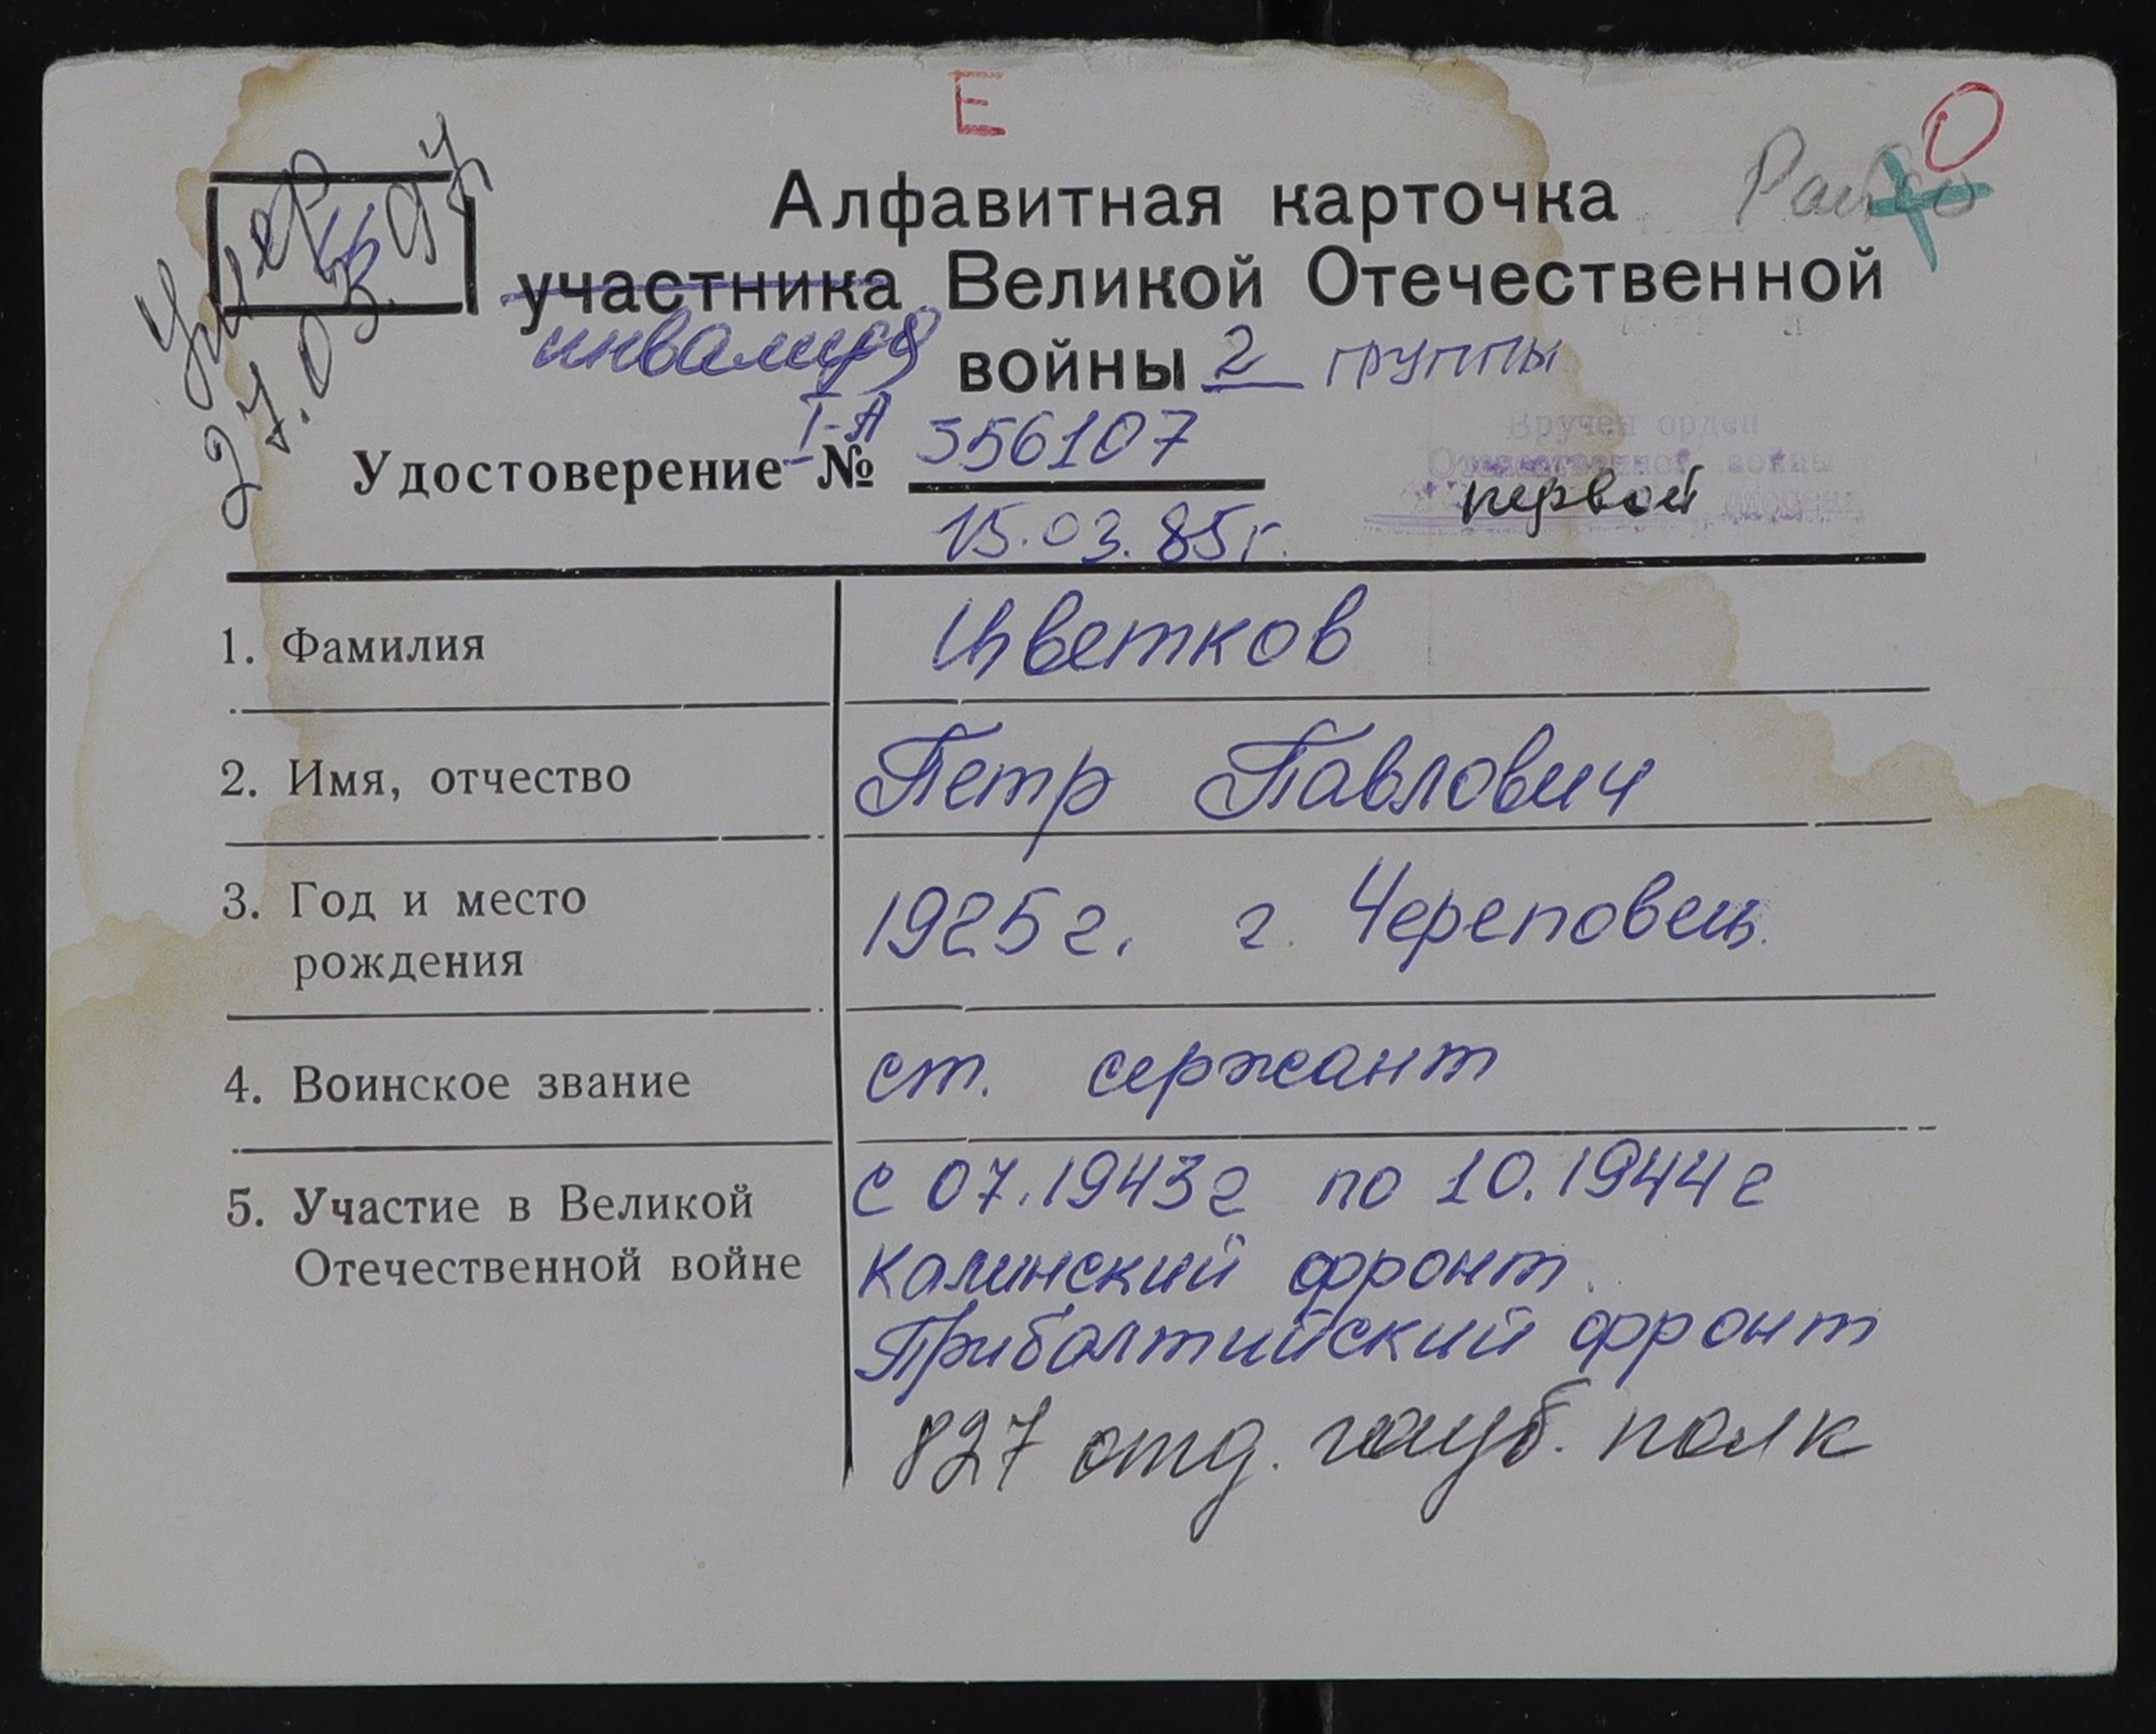 Е
О
Райсо
Умер
27.03.97
Алфавитная карточка
участника Великой Отечественной
инвалида войны 2 группы
Т-А
Удостоверение № 356107
15.03.85г.
Вручен орден
Отечественной войны
первой степени
1. Фамилия Цветков
2. Имя, отчество Петр Павлович
3. Год и место 1925г. г. Череповец.
рождения
4. Воинское звание ст. сержант
5. Участие в Великой с 07.1943г по 10.1944г
Отечественной войне Калинский фронт.
Прибалтийский фронт
827 отд. гауб. полк